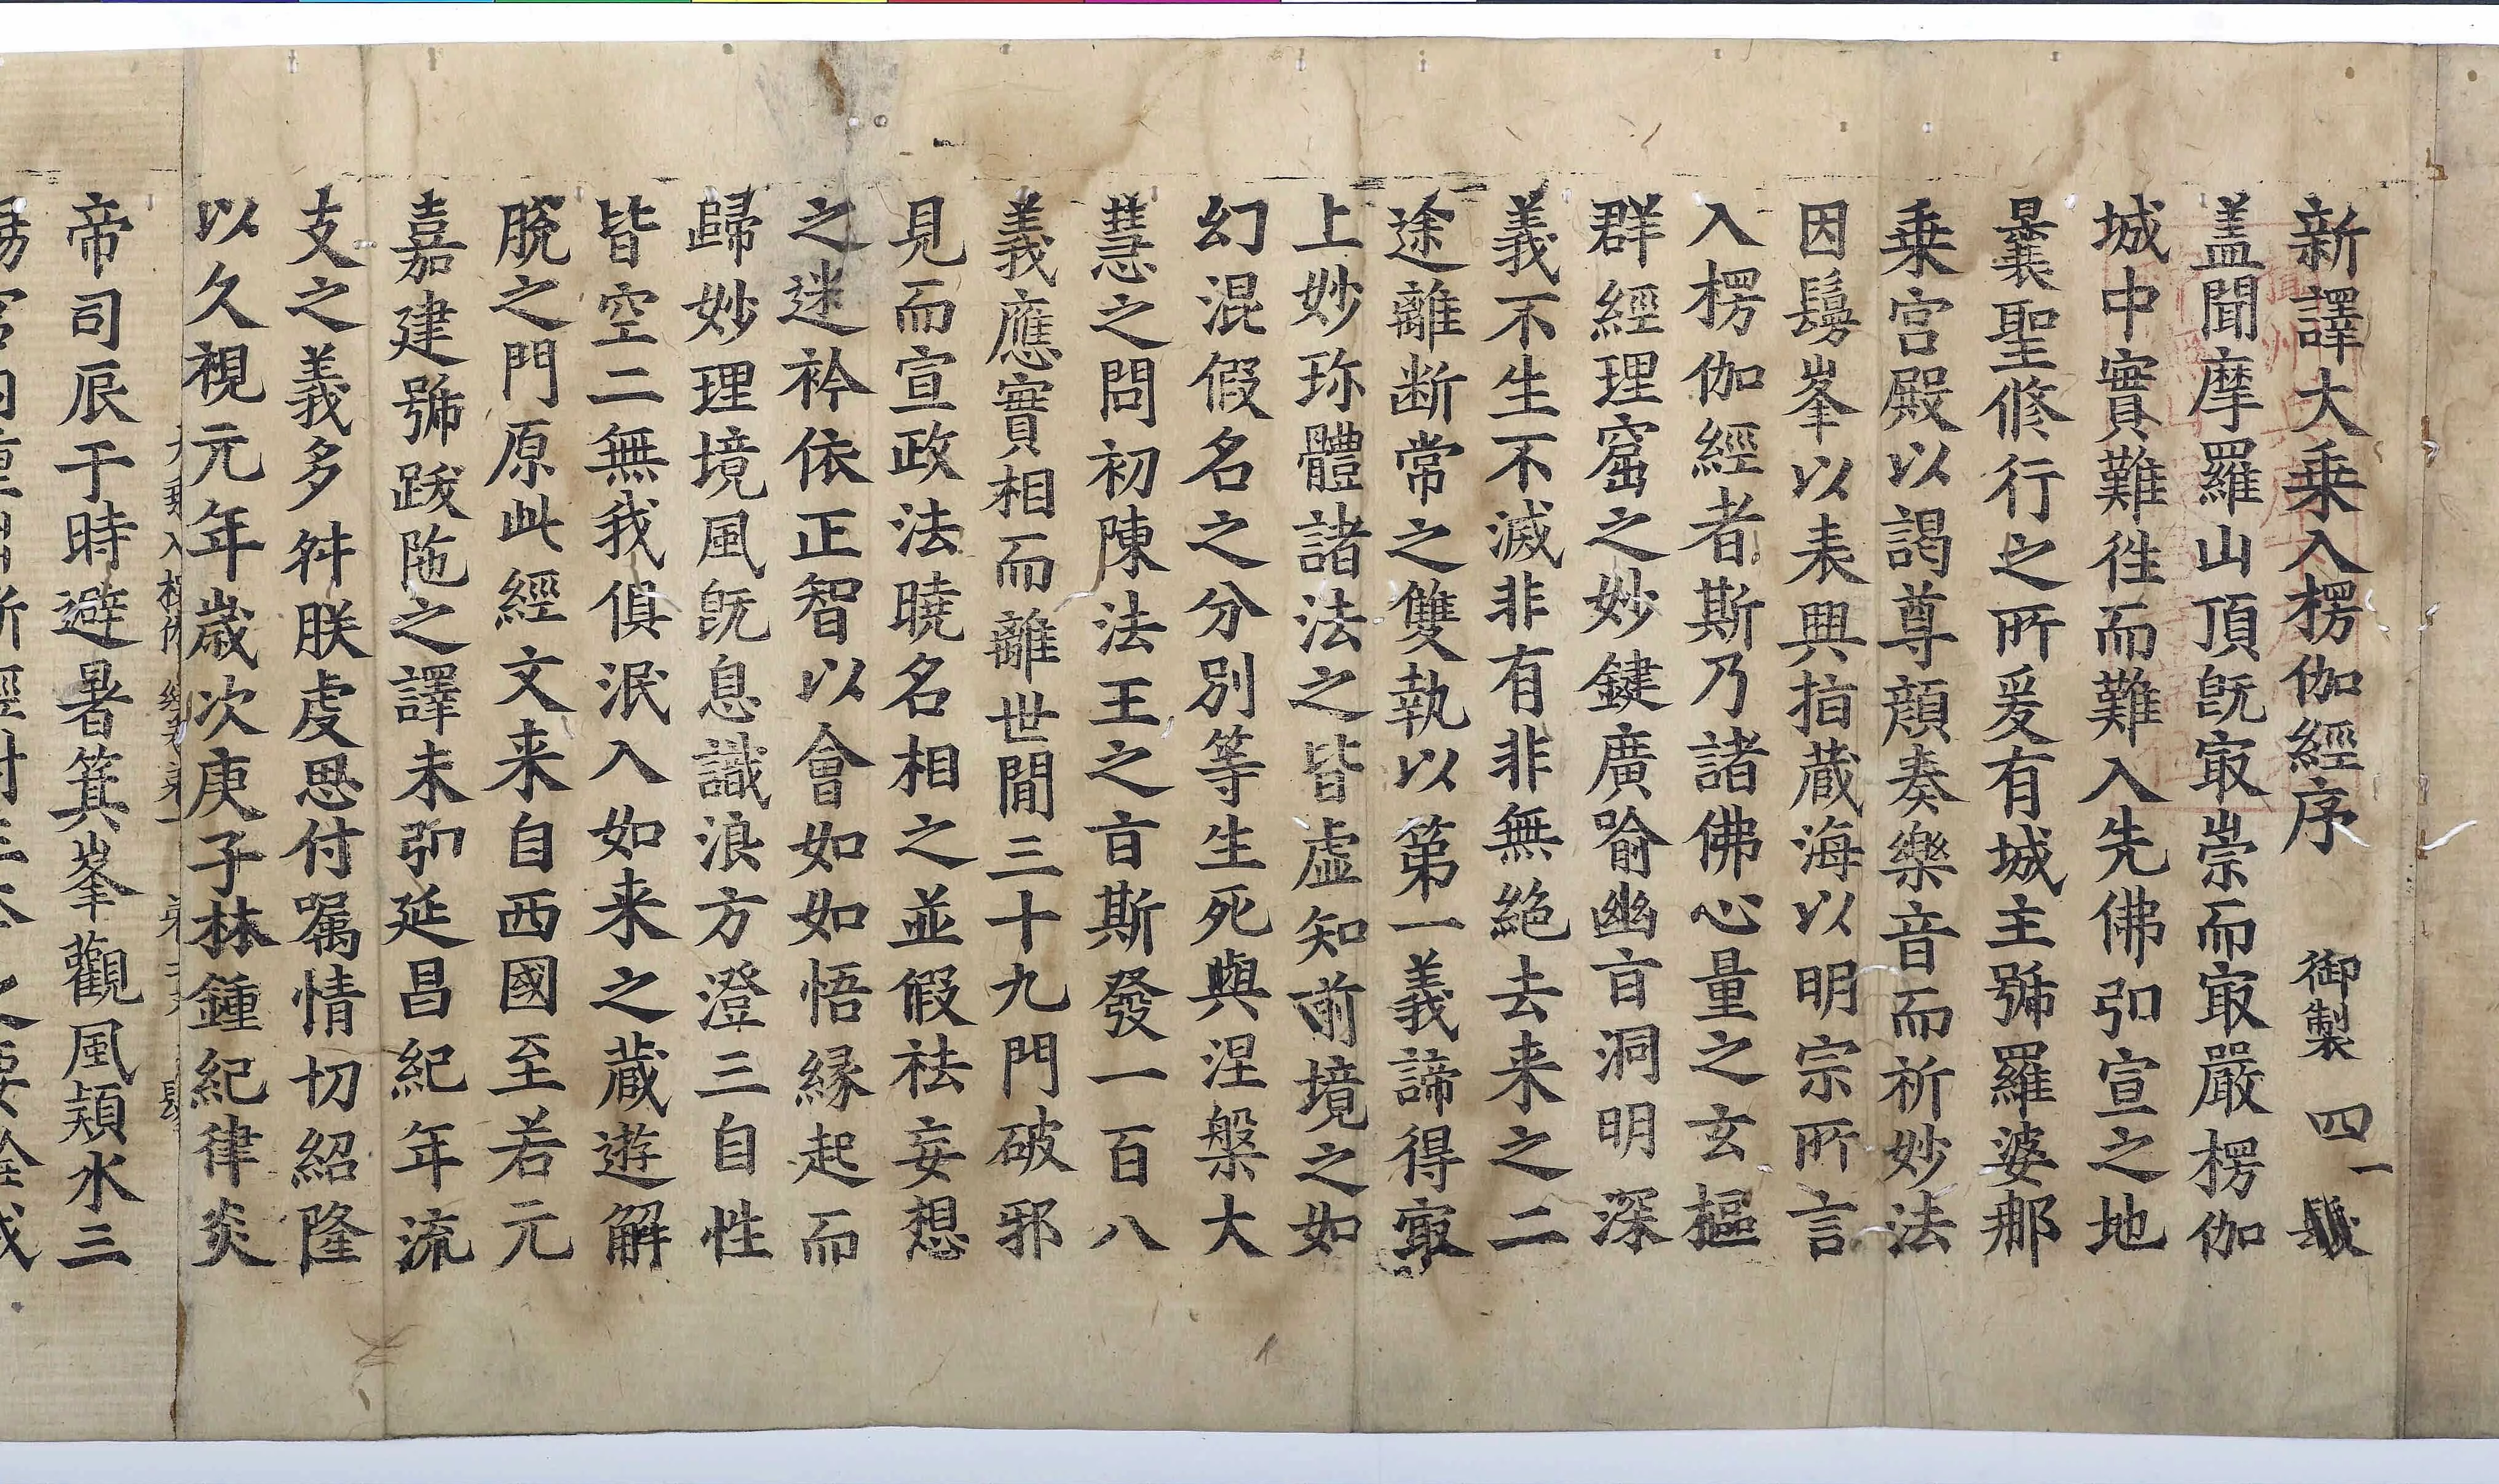 新譯大乗入楞伽經序 御製 四一 髮
盖聞摩羅山頂旣㝡崇而㝡嚴楞伽
城中實難徃而難入先佛弘宣之地
曩聖修行之所爰有城主號羅婆那
乗宫殿以謁尊顔奏樂音而祈妙法
因鬘峯以表興指蔵海以明宗所言
入楞伽經者斯乃諸佛心量之玄樞
群經理窟之妙鍵廣喻幽㫖洞明深
義不生不滅非有非無絶去来之二
途離断常之雙執以第一義諦得㝡
上妙珎體諸法之皆虚知前境之如
幻混假名之分别等生死與涅槃大
慧之問初陳法王之㫖斯發一百八
義應實相而離世間三十九門破邪
見而宣政法曉名相之並假祛妄想
之迷衿依正智以會如如悟縁起而
歸妙理境風旣息識浪方澄三自性
皆空二無我俱泯入如来之蔵遊解
脫之門原此經文来自西國至若元
嘉建號跋陁之譯未弘延昌紀年流
支之義多舛朕虔思付囑情切紹隆
以久視元年歲次庚子林鍾紀律炎
帝司辰于時避暑箕峯觀風頴水三